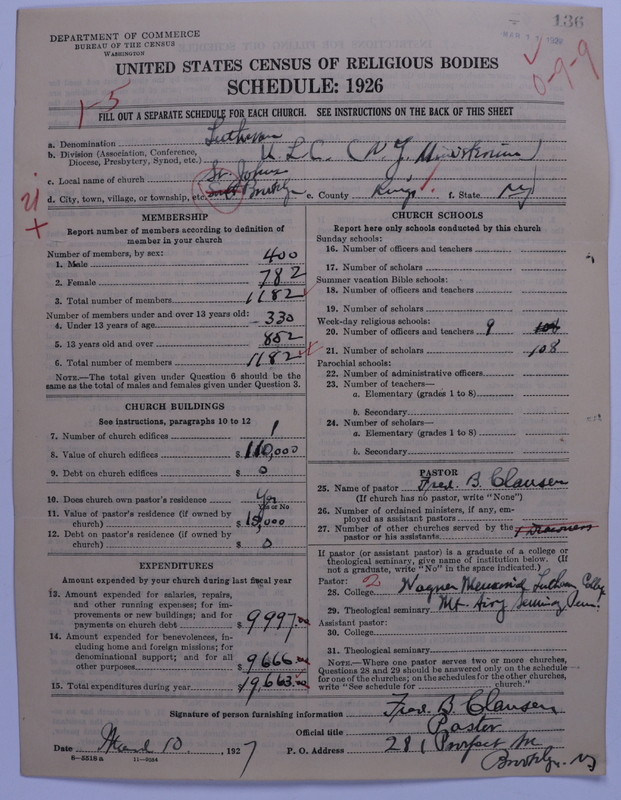 136
DEPARTMENT OF COMMERCE
BUREAU OF THE CENSUS
WASHINGTON
UNITED STATES CENSUS OF RELIGIOUS BODIES
SCHEDULE: 1926
1-5
0-9-9
FILL OUT A SEPARATE SCHEDULE FOR EACH CHURCH. SEE INSTRUCTIONS ON THE BACK OF THIS SHEET
a. Denomination Lutheran
b. Division (Association, Conference, Diocese, Presbytery, Synod, etc.) U.L.C. (N.Y. Ministerium)
c. Local name of church St Johns
d. City, town, village, or township, etc. Brooklyn e. County Kings f. State NY
MEMBERSHIP
Report number of members according to definition of
member in your church
Number of members, by sex:
1. Male 400
2. Female 782
3. Total number of members 1182
Number of members under and over 13 years old:
4. Under 13 years of age 330
5. 13 years old and over 852
6. Total number of members 1182
NOTE.—The total given under Question 6 should be the
same as the total of males and females given under Question 3.
CHURCH BUILDINGS
See instructions, paragraphs 10 to 12
7. Number of church edifices 1
8. Value of church edifices $110,000
9. Debt on church edifices $0
10. Does church own pastor's residence Yes
Yes or No
11. Value of pastor's residence (if owned by
church) $15,000
12. Debt on pastor's residence (if owned by
church) $0
EXPENDITURES
Amount expended by your church during last fiscal year
13. Amount expended for salaries, repairs,
and other running expenses; for im-
provements or new buildings; and for
payments on church debt $9997.00
14. Amount expended for benevolences, in-
cluding home and foreign missions; for
denominational support; and for all
other purposes $9666.00
15. Total expenditures during year 19,663.00
CHURCH SCHOOLS
Report here only schools conducted by this church
Sunday schools:
16. Number of officers and teachers
17. Number of scholars
Summer vacation Bible schools:
18. Number of officers and teachers
19. Number of scholars
Week-day religious schools:
20. Number of officers and teachers 9
21. Number of scholars 108
Parochial schools:
22. Number of administrative officers
23. Number of teachers—
a. Elementary (grades 1 to 8)
b. Secondary
24. Number of scholars—
a. Elementary (grades 1 to 8)
b. Secondary
PASTOR
25. Name of pastor Fred. B. Clausen
(If church has no pastor, write "None")
26. Number of ordained ministers, if any, em-
ployed as assistant pastors
27. Number of other churches served by the
pastor or his assistants
If pastor (or assistant pastor) is a graduate of a college or
theological seminary, give name of institution below. (If
not a graduate, write "No" in the space indicated.)
Pastor: 2
28. College Wagner Memorial Lutheran College
29. Theological seminary Mt. Airy Seminary Penn.
Assistant pastor:
30. College
31. Theological seminary
NOTE.—Where one pastor serves two or more churches,
Questions 28 and 29 should be answered only on the schedule
for one of the churches; on the schedules for the other churches,
write "See schedule for church."
Signature of person furnishing information Fred. B. Clausen
Official title Pastor
Date March 10, 1927 P. O. Address 281 Prospect Ave
Brooklyn NY
8-5518a 11-9164